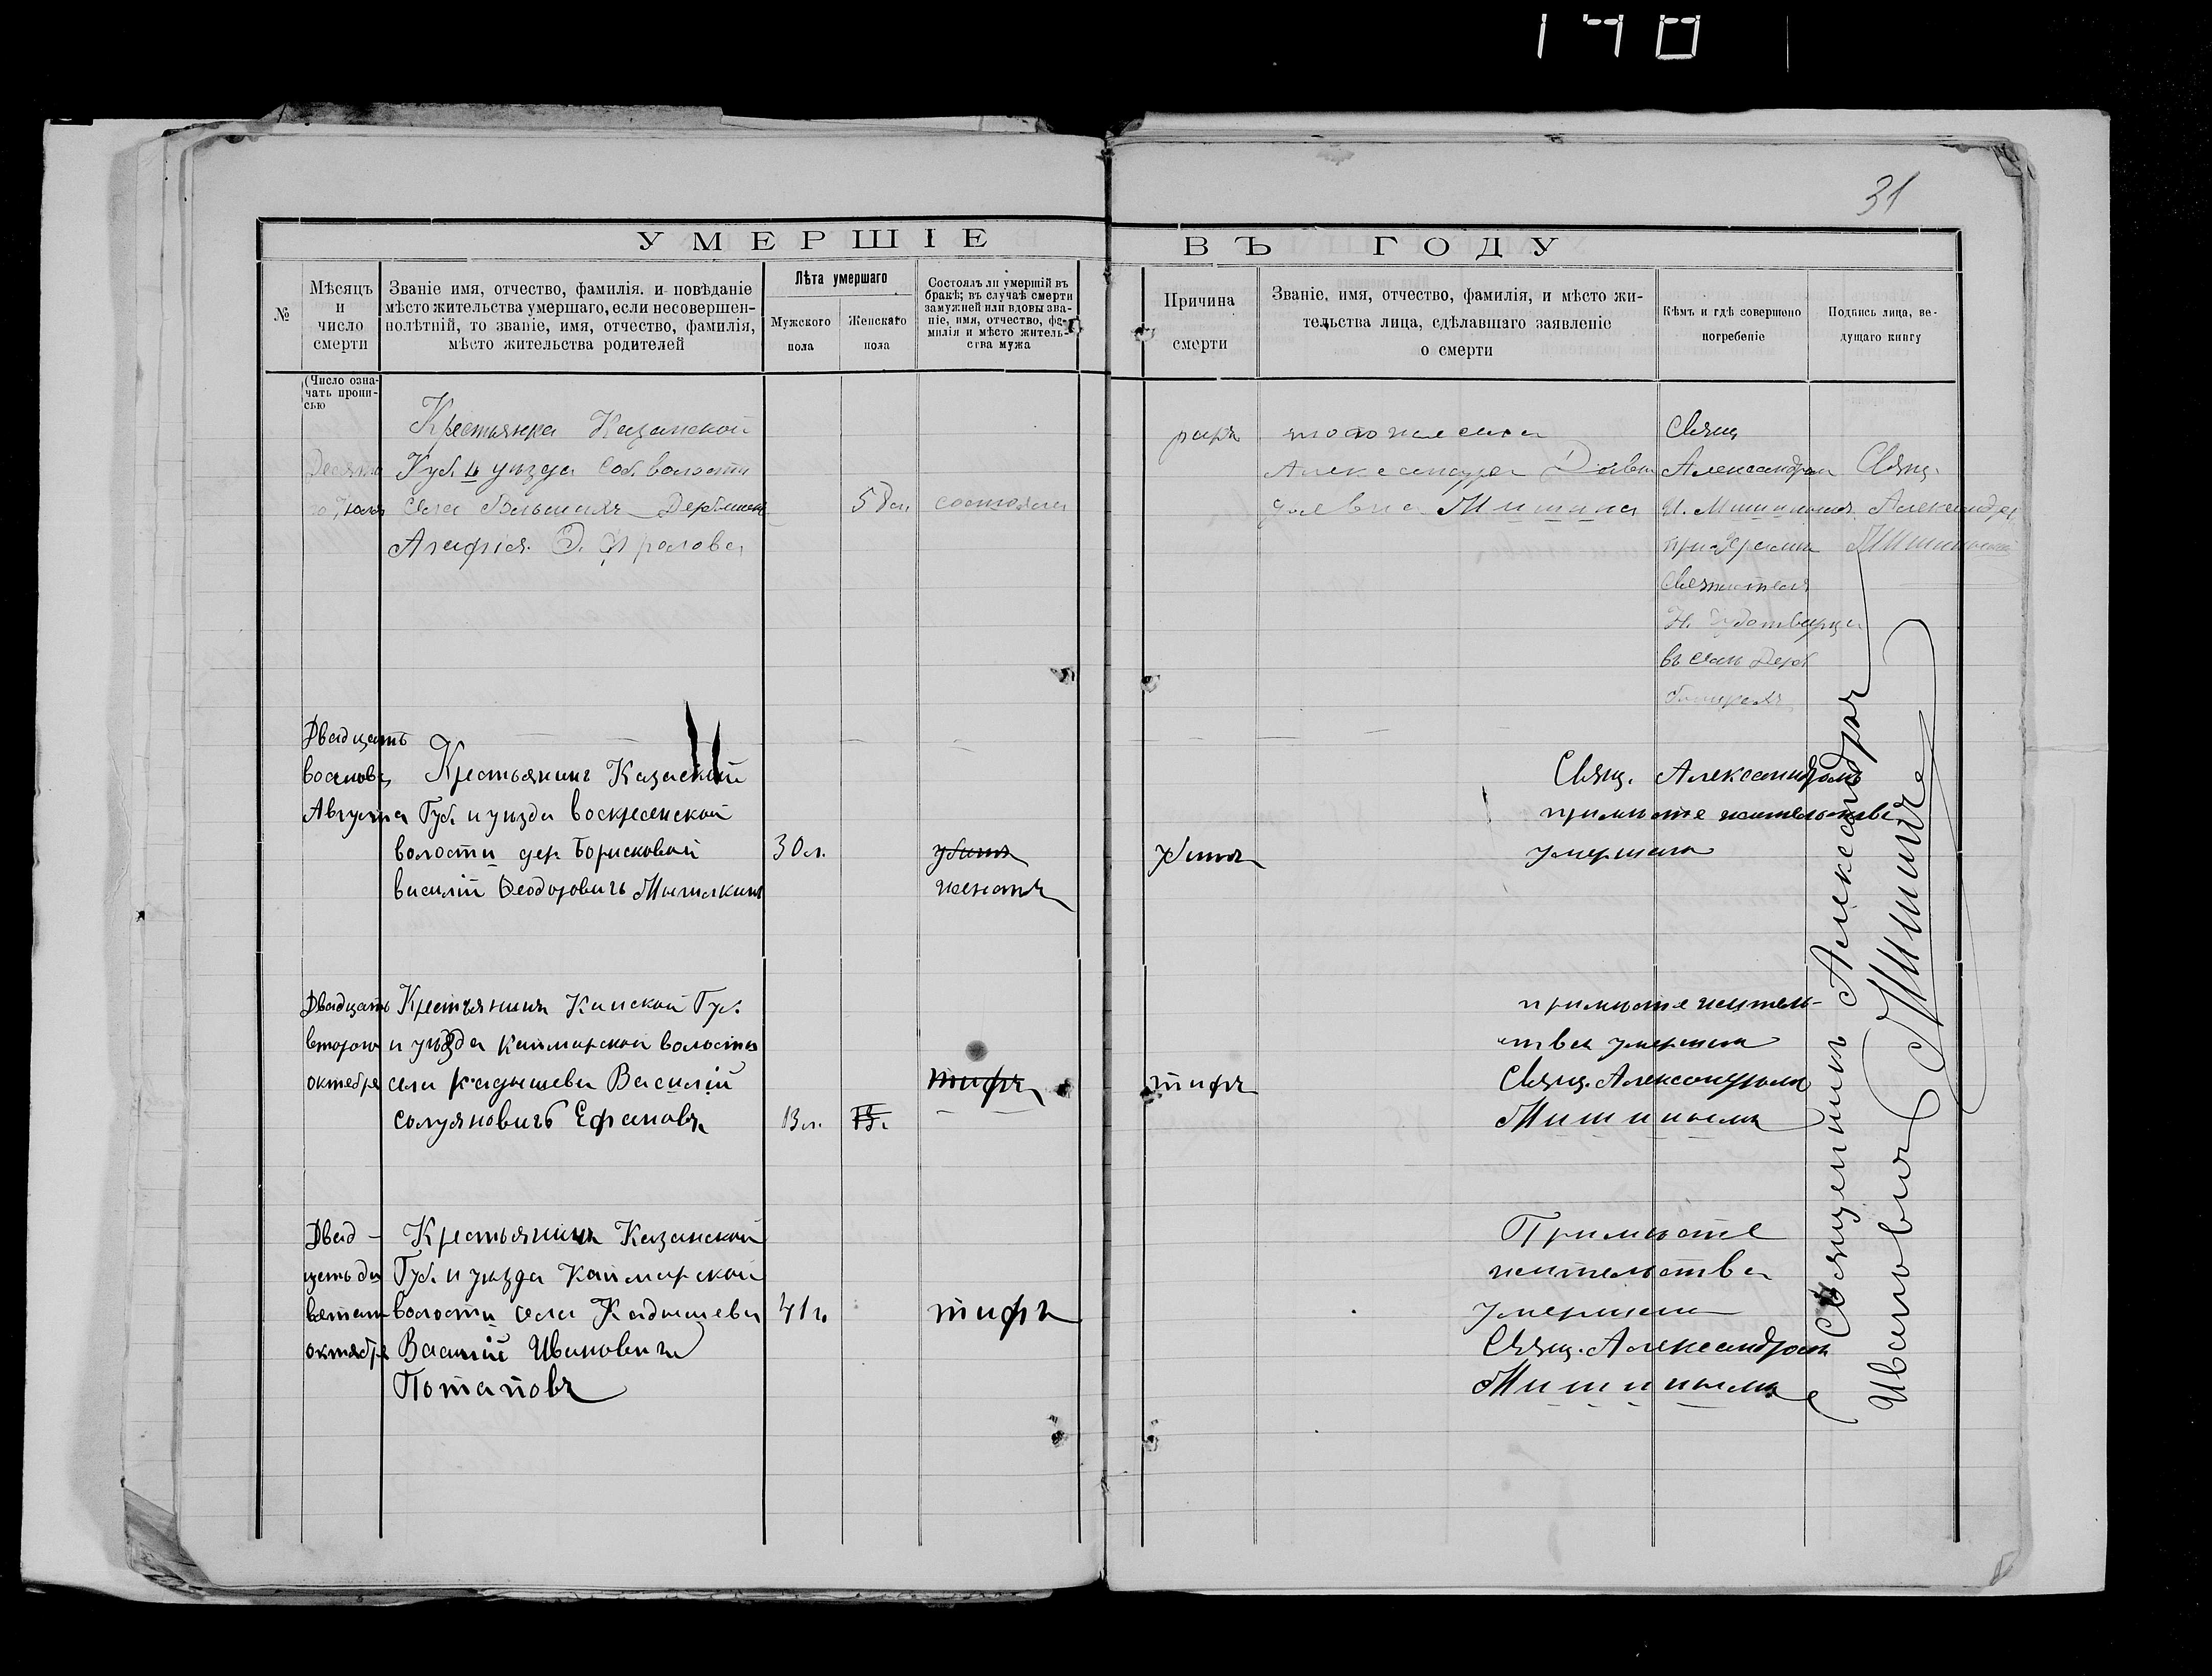 190
31
УМЕРШІЕ ВЪ ГОДУ
№
Мѣсяцъ
и
число
смерти
Званіе имя, отчество, фамилія. и повѣданіе
мѣсто жительства умершаго, если несовершен-
нолѣтній, то званіе, имя, отчество, фамилія,
мѣсто жительства родителей
Лѣта умершаго
Мужского
пола
Женскаго
пола
Состоялъ ли умершій въ
бракѣ; въ случаѣ смерти
замужней или вдовы зва-
ніе, имя, отчество, фа-
милія и мѣсто житель-
ства мужа
Причина
смерти
Званіе, имя, отчество, фамилія, и мѣсто жи-
тельства лица, сдѣлавшаго заявленіе
о смерти
Кѣмъ и гдѣ совершено
погребеніе
Подпись лица, ве-
дущаго книгу
(Число озна-
чать пропи-
сью
Десята
го Іюля
Крестьянка Казанской
Губ. и уѣзда Соб. волости
села Большихъ Дербышек
Агафія Ѳ. Фролова
58 л.
состояла
ракъ
Александра Давы
довна Мишина
Свящ
Александром
И. Мишинымъ
при Храмѣ
Святителя
Н. Чудотворца
въ селѣ Дерб
Свящ.
Александръ
Мишинъ
Двадцать
восьмова
Августа
Крестьянинъ Казанской
Губ. и уѣзда воскресенской
волости дер Борисковой
василій Ѳеодоровичъ
30 л.
убитъ
женатъ
убитъ
Свящ. Александромъ
примѣсте жительства
умершаго
Двадцать
второго
октября
Крестьянинъ Губ.
и уѣзда Каймарской волости
села Кадышева Василій
Ефановъ
13 л.
13.
тифъ
тифъ
примѣсте житель-
ства умершаго
Свящ. Александромъ
Мишинымъ
Двад-
цать де
вятаго
октября
Крестьянинъ Казанской
Губ. и уѣзда Каймарской
волости села Кадышева
Василій Ивановичъ
Потаповъ
41 г.
тифъ
Примѣсте
жительства
умершаго
Свящ. Александромъ
Мишинымъ
Священникъ Александръ
Ивановичъ Мишинъ